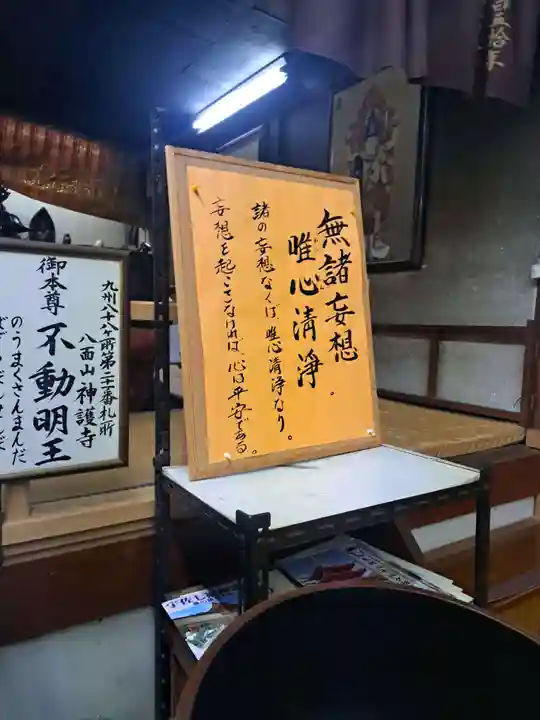 無諸妄想
唯心清浄
諸の妄想なくば、唯心清浄なり。
妄想を起こさなければ、心は平安である。
九州八十八ヶ所第二十二番札所
八面山神護寺
御本尊不動明王
のうまくさんまんだ